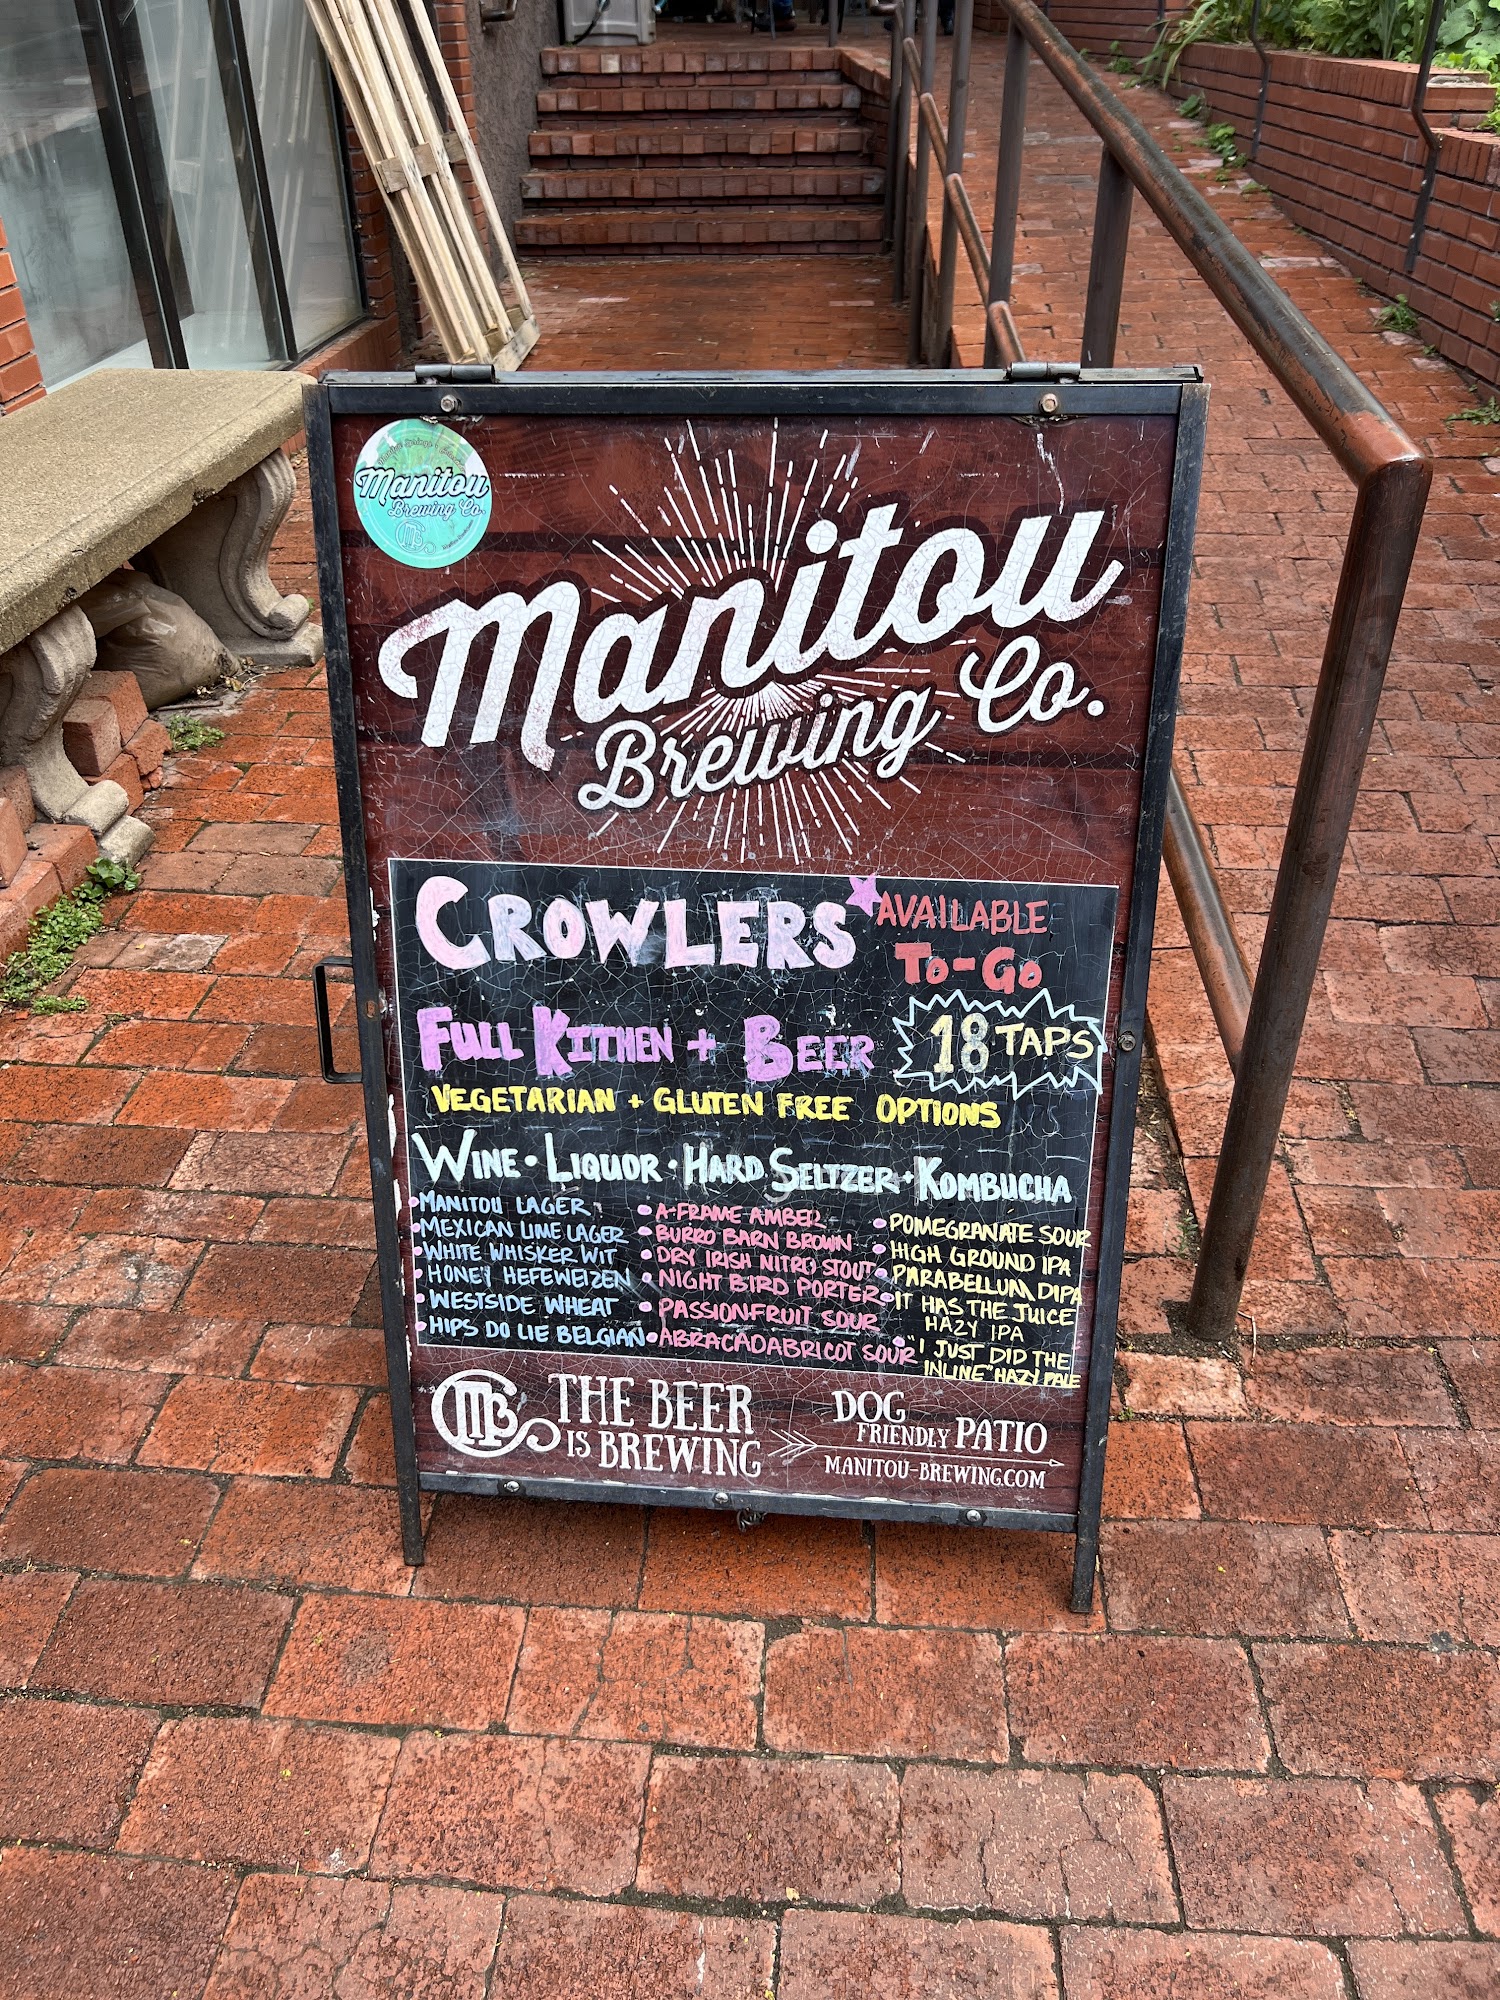 Manitou
Brewing Co.
Manitou
Brewing Co.
CROWLERS AVAILABLE
TO-GO
FULL KITCHEN + BEER 18 TAPS
VEGETARIAN + GLUTEN FREE OPTIONS
WINE • LIQUOR • HARD SELTZER • KOMBUCHA
• MANITOU LAGER
• MEXICAN LIME LAGER
• WHITE WHISKER WIT
• HONEY HEFEWEIZEN
• WESTSIDE WHEAT
• HIPS DO LIE BELGIAN
• A-FRAME AMBER
• BURRO BARN BROWN
• DRY IRISH NITRO STOUT
• NIGHT BIRD PORTER
• PASSIONFRUIT SOUR
• ABRACADABRICOT SOUR
• POMEGRANATE SOUR
• HIGH GROUND IPA
• PARABELLUM DIPA
• IT HAS THE JUICE
HAZY IPA
• "I JUST DID THE
INLINE" HAZY PALE
THE BEER
IS BREWING
DOG
FRIENDLY PATIO
MANITOU-BREWING.COM